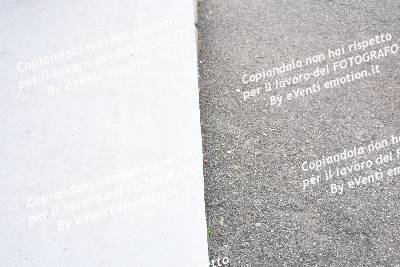 Copiandola non hai rispetto
per il lavoro del FOTOGRAFO
By eVenti emotion.it
Copiandola non hai rispetto
per il lavoro del FOTOGRAFO
By eVenti emotion.it
Copiandola non hai rispetto
per il lavoro del FOTOGRAFO
By eVenti emotion.it
Copiandola non
per il lavoro del
By eVenti